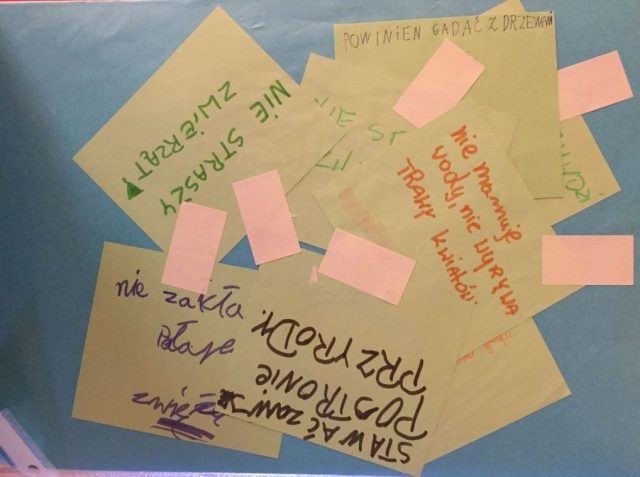 POWINIEN GADAĆ Z DRZEWAMI
NIE STRASZY
ZWIERZĄT!
NIE ST
nie marnuje
wody, nie wyrywa
TRAWY KWIATÓW.
nie zakłą
STAWAĆ ZAWSZE
PO STRONIE
PRZYRODY.